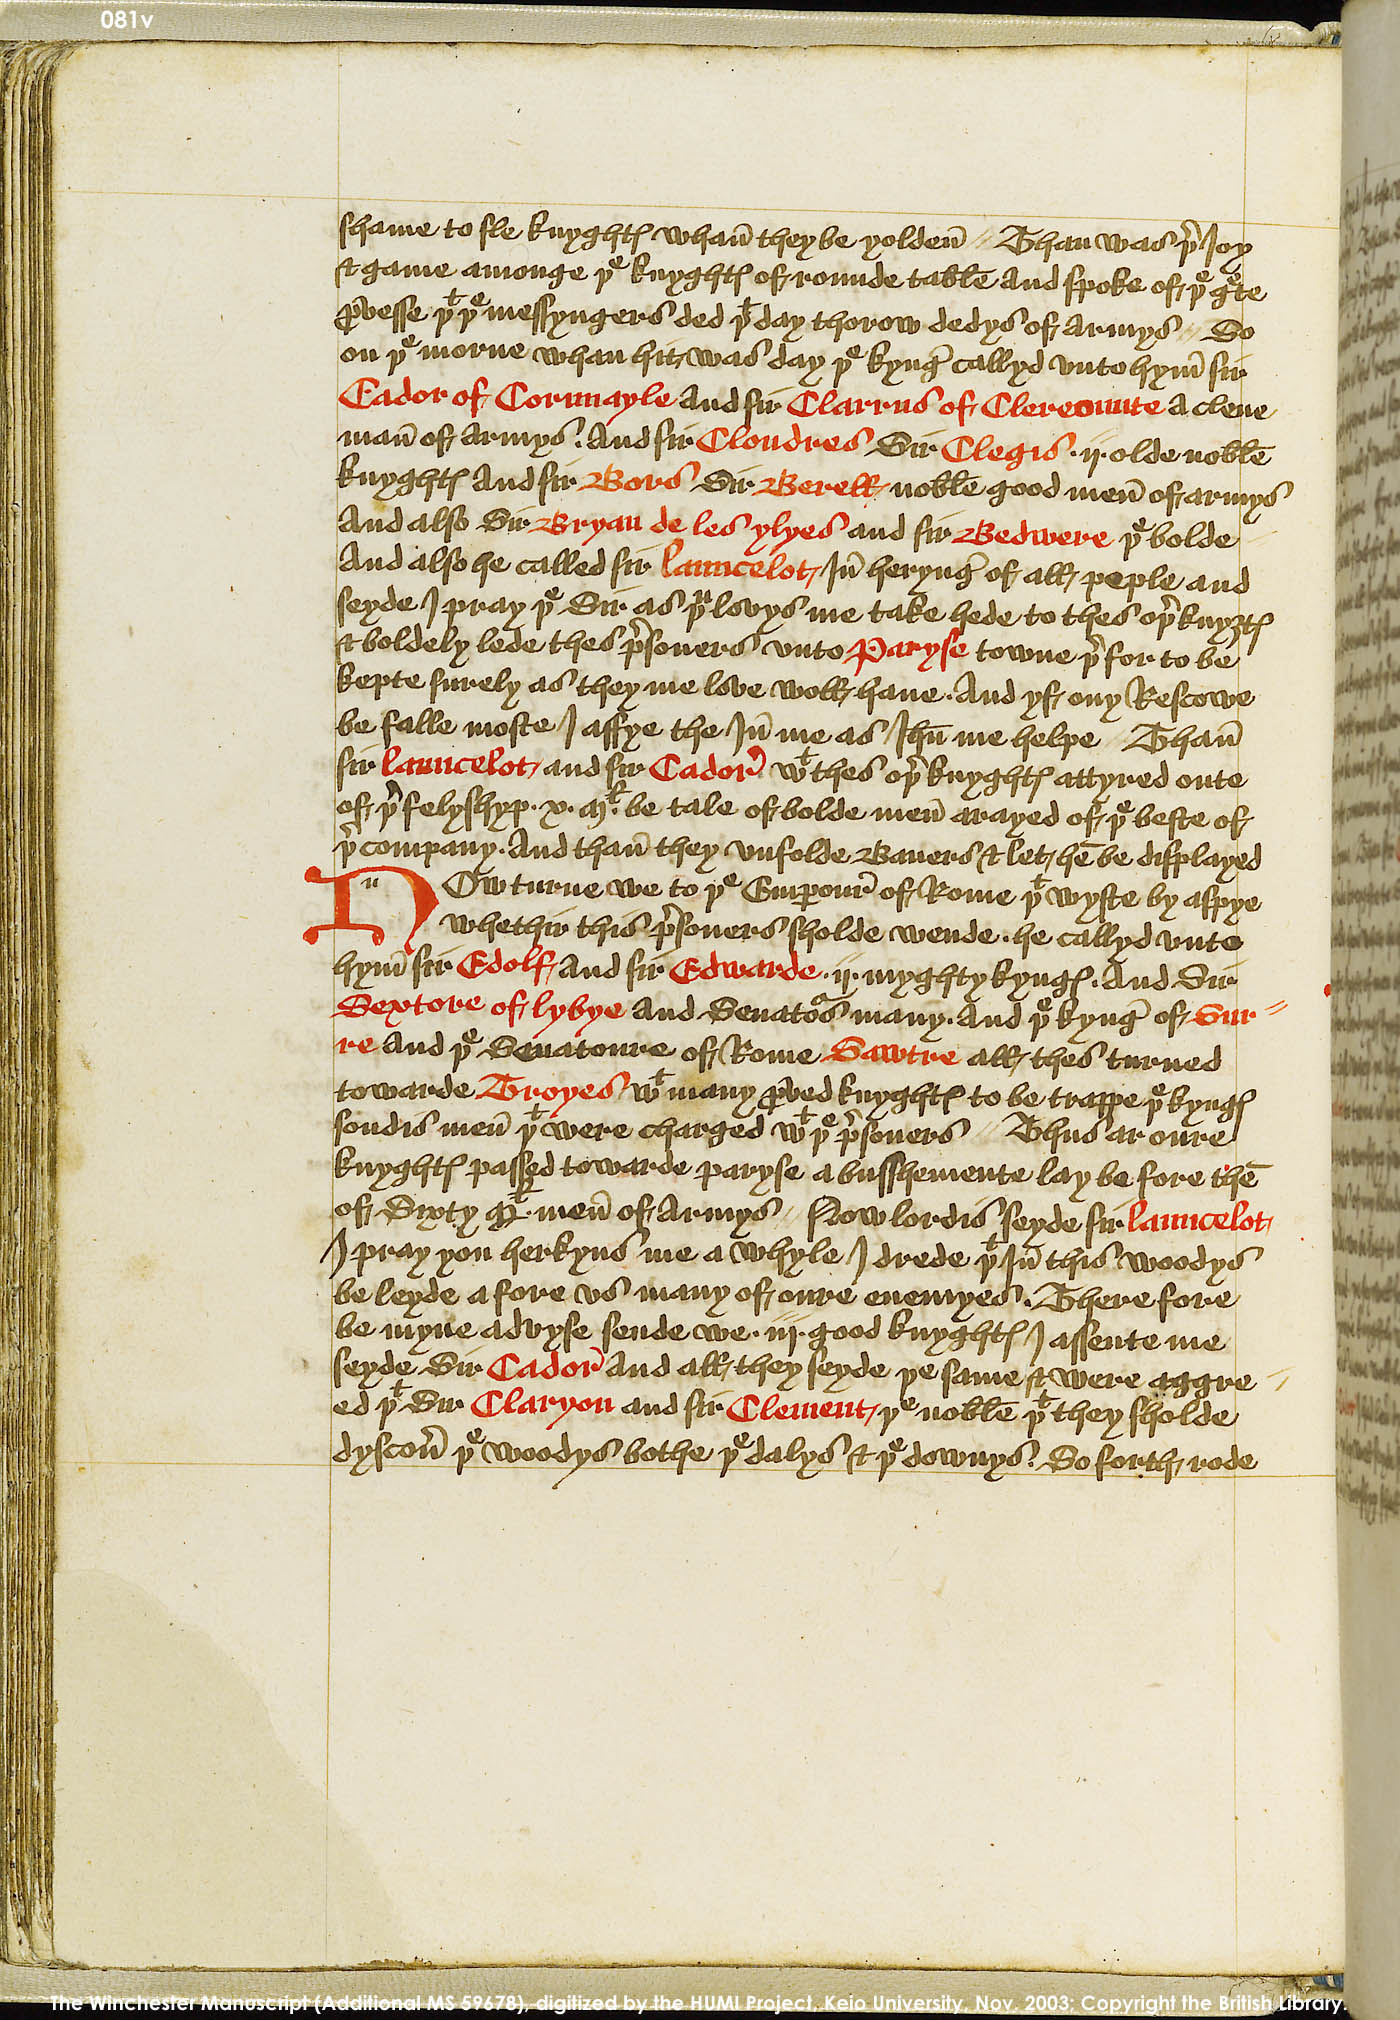 081v
shame to sle knyghtꝭ whan̄ they be yolden̄ // Than was þᵉr Joy
& game amonge þᵉ knyghtꝭ of rounde table And spoke of þᵉ gᵉte
ꝓvesse þᵗ þᵉ messyngers ded þᵗ day thorow dedys of Armys // So
on þᵉ morne whan hit was day þᵉ kyng callyd vnto hym̄ sir
Cador of Cornwayle And sir Clarrus of Clerecounte A clene
man̄ of Armys. And sir Cloudres Sir Clegis .ij. olde noble
knyghtꝭ And sir Bors Sir Berell noble good men̄ of armys
And also Sir Bryan de les ylyes and sir Bedwere þᵉ bolde
And also he called sir launcelot Jn̄ heryng of all peple and
seyde J pray þᵉ Sir as þᵘ lovys me take hede to thes oþʳ knyȝtꝭ
& boldely lede thes pʳsoners vnto Paryse towne þʳ for to be
kepte surely as they me love woll haue. And yf ony Rescowe
be falle moste J affye the Jn̄ me as Jhū me helpe // Than̄
sir launcelot and sir Cador wᵗ thes oþʳ knyghtꝭ attyred oute
of þʳ felyshyp .x. Mˡ. be tale of bolde men̄ arayed of þᵉ beste of
þʳ company. And than̄ they vnfolde Baners & let hē be displayed
N Ow turne we to þᵉ Emperour of Rome þᵗ wyste by aspye
whethir this pʳsoners sholde wende. he callyd vnto
hym̄ sir Edolf And sir Edwarde .ij. myghty kyngꝭ. And Sir
Sextore of lybye And Senatoᵘs many. And þᵉ kyng of Sur=
re And þᵉ Senatoure of Rome Sawtre all thes turned
towarde Troyes wᵗ many ꝓved knyghtꝭ to be trappe þᵉ kyngꝭ
sondis men̄ þᵗ were charged wᵗ þᵉ pʳsoners // Thus ar oure
knyghtꝭ passed towarde paryse a busshemente lay be fore thē
of Sixty Mˡ. men̄ of Armys // Now lordis seyde sir launcelot
J pray you herkyns me a whyle J drede þᵗ Jn̄ this woodys
be leyde a fore vs many of oure enemyes. There fore
be myne advyse sende we .iij. good knyghtꝭ J assente me
seyde Sir Cador And all they seyde þe same & were aggre=
ed þᵗ Sir Claryon and sir Clement þᵉ noble þᵗ they sholde
dyscoū þᵉ woodys bothe þᵉ dalys & þᵉ downys. So forth rode
The Winchester Manuscript (Additional MS 59678), digitized by the HUMI Project, Keio University, Nov. 2003; Copyright the British Library.